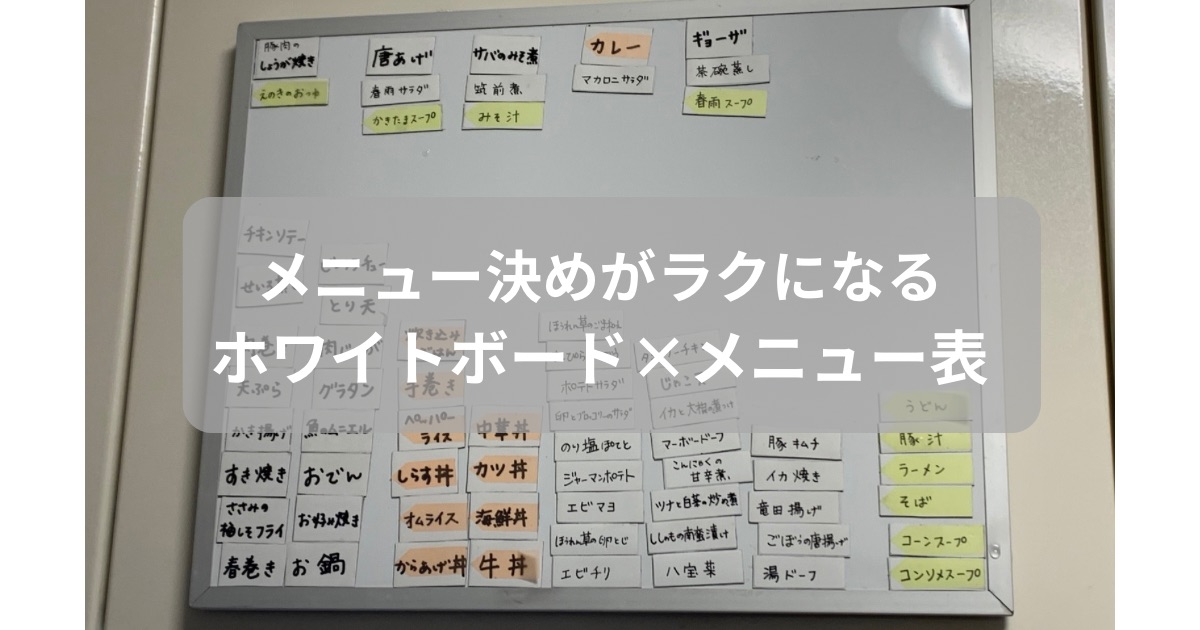 豚肉の
しょうが焼き
えのきのおつゆ
唐あげ
春雨サラダ
かきたまスープ
サバのみそ煮
筑前煮
みそ汁
カレー
マカロニサラダ
ギョーザ
茶碗蒸し
春雨スープ
メニュー決めがラクになる
ホワイトボード×メニュー表
チキンソテー
とり天
天ぷら
グラタン
かき揚げ
魚のムニエル
すき焼き
おでん
ささみの
梅しそフライ
お好み焼き
春巻き
お鍋
炊き込み
ごはん
手巻き
ペッパー
ライス
中華丼
しらす丼
カツ丼
オムライス
海鮮丼
からあげ丼
牛丼
ほうれん草のごまあえ
ポテトサラダ
卵とブロッコリーのサラダ
イカと大根の煮つけ
のり塩ぽてと
マーボードーフ
豚キムチ
ジャーマンポテト
こんにゃくの
甘辛煮
イカ焼き
エビマヨ
ツナと白菜の炒め煮
竜田揚げ
ほうれん草の卵とじ
ししゃもの南蛮漬け
ごぼうの唐揚げ
エビチリ
八宝菜
湯ドーフ
うどん
豚汁
ラーメン
そば
コーンスープ
コンソメスープ